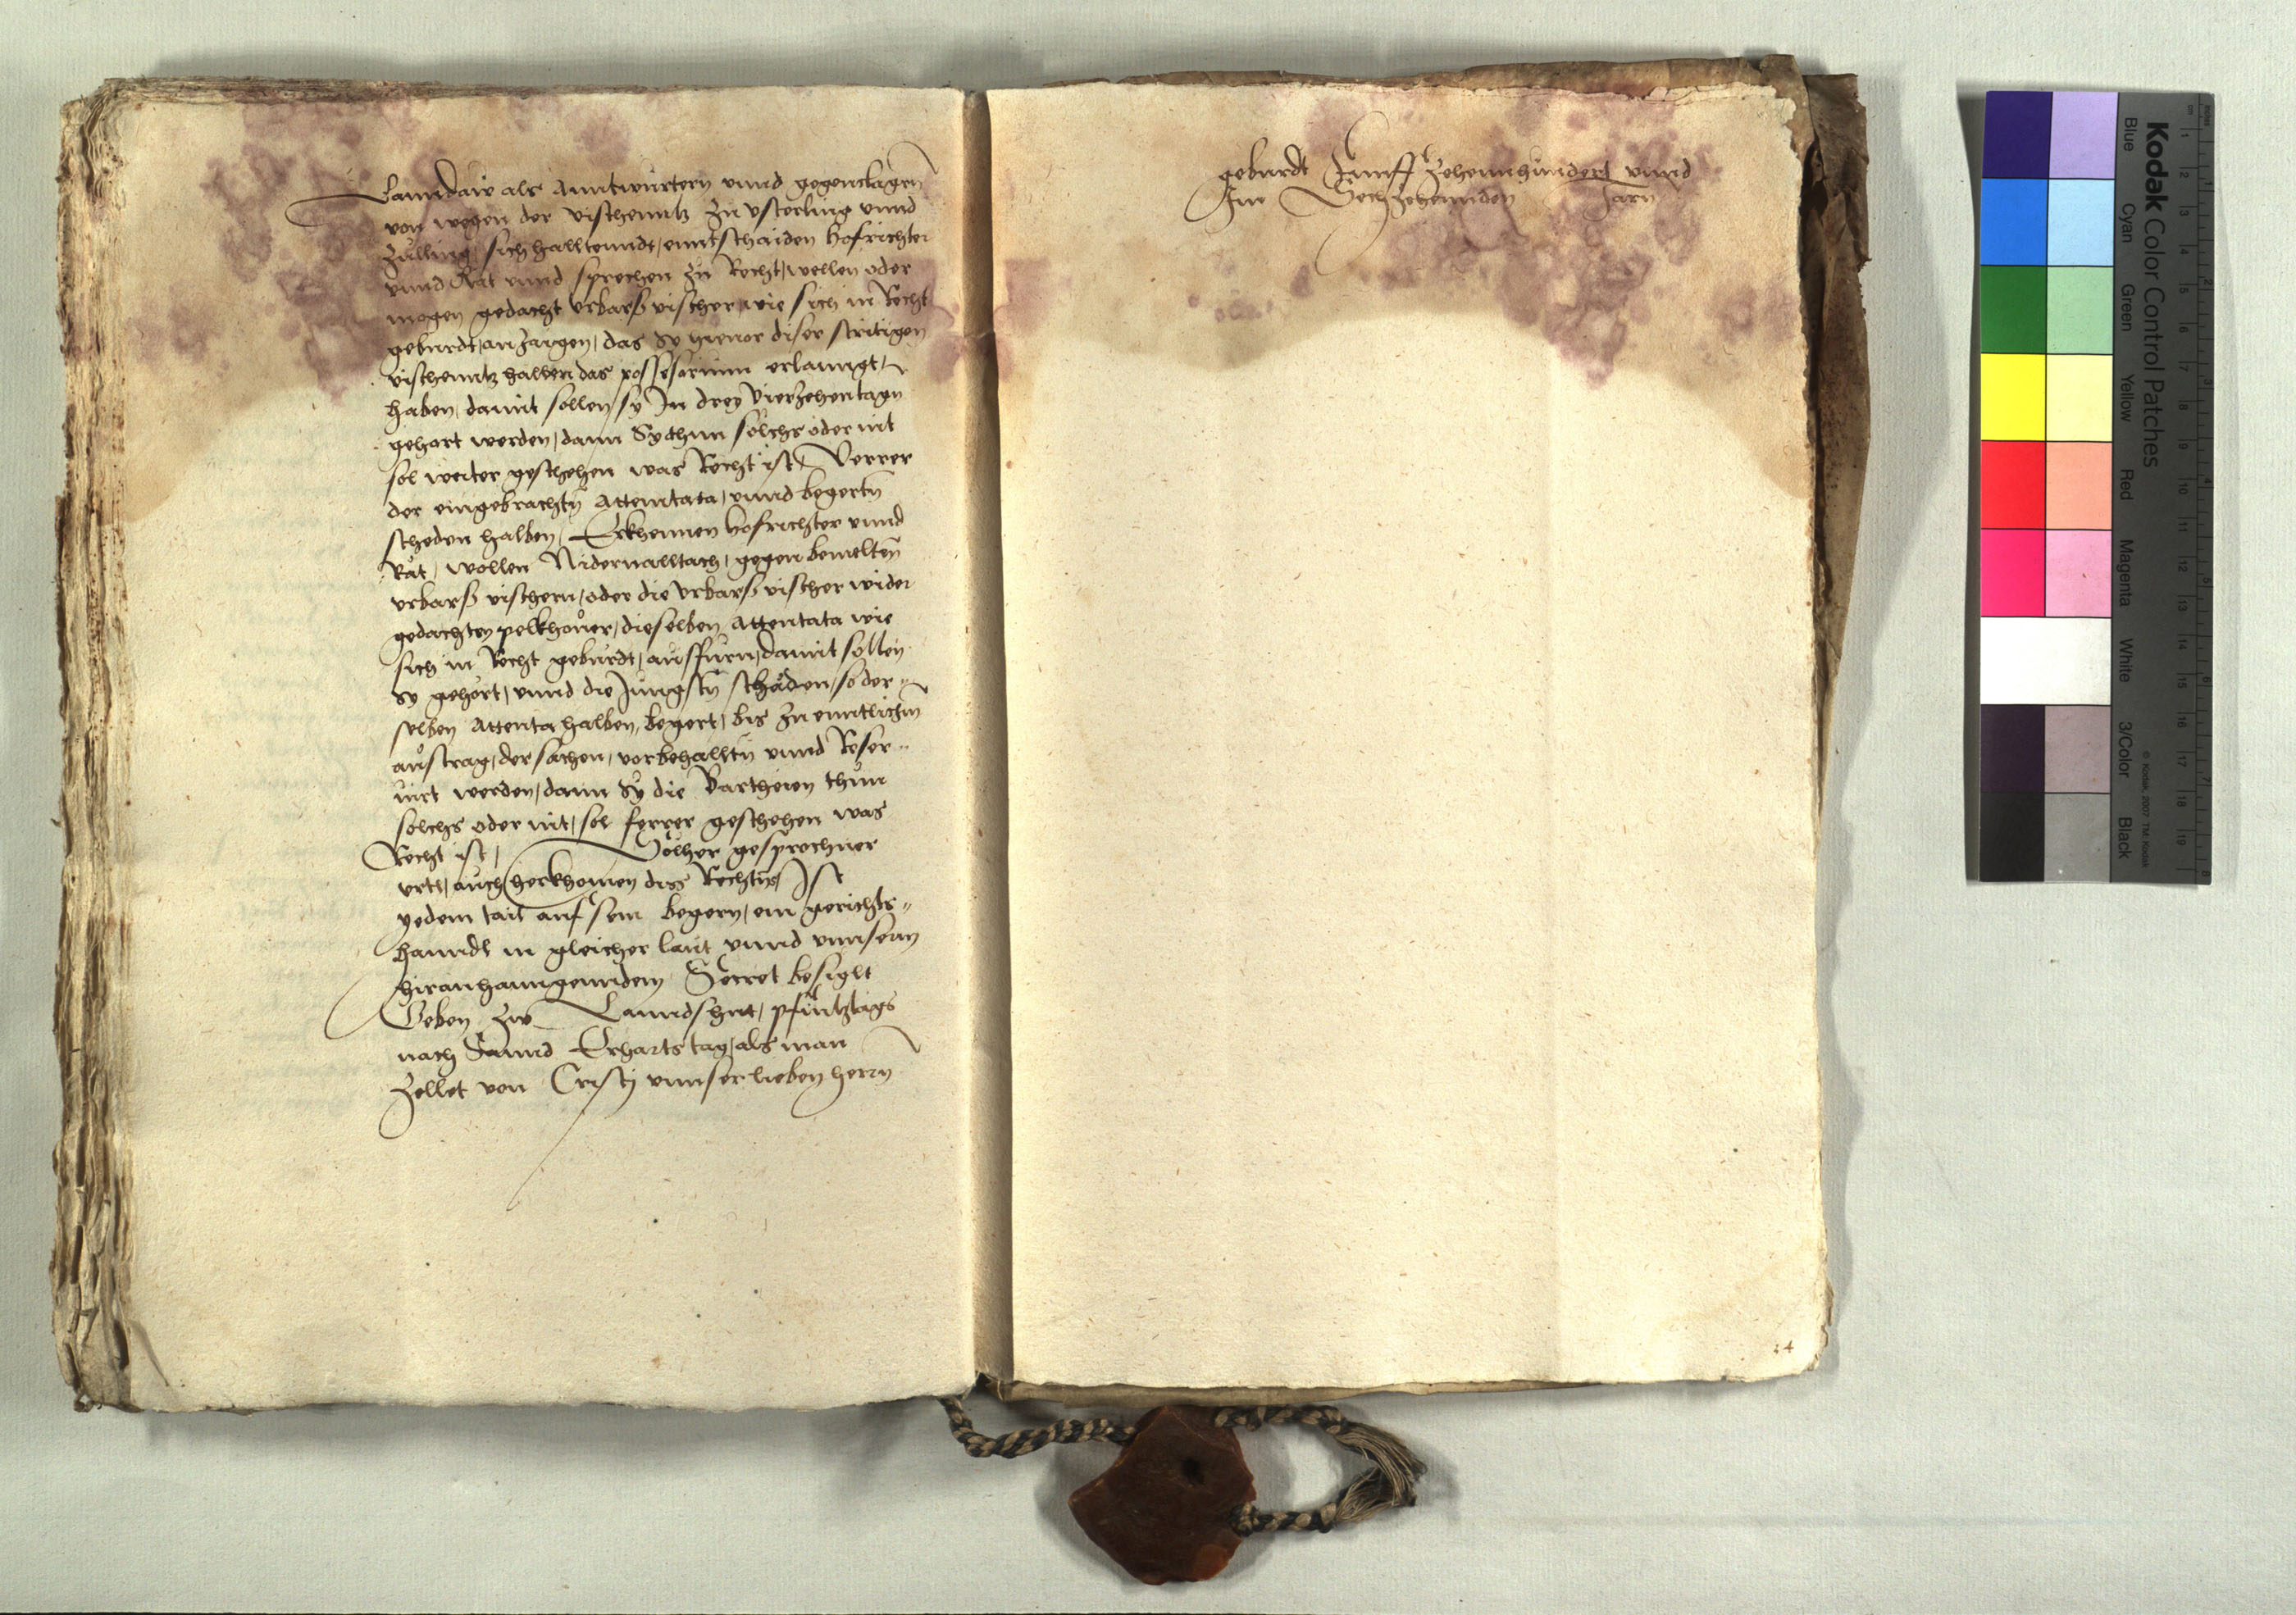 Lanndaw als Anntwurtern vnnd gegenclagern
von wegen der vischenntz zu vsterling vnnd
Zulling sich halltenndt, enntschaiden hofrichter
vnnd Rät vnnd sprechen zu Recht, wellen oder
mogen gedacht vrbarß vischer, wie sich in Recht
geburdt, anzaigen, das sy hieuor diser stritigen
vischenntz halben das possessorium erlanngt,
haben, damit sollen sy In drey vierzehen tagn
gehort werden, dann Sy thun solchs oder nit
sol weiter geschehen was Recht ist, Verrer
der eingebrachtn Attentata, vnnd begertn
scheden halben, Erkhennen hofrichter vnnd
Rät, wollen Nidernalltach, gegen bemeltn
vrbarß vischern, oder die vrbarß vischer wider
gedachten pelkhouer, dieselben Attentata wie
sich in Recht geburdt, ausfurn, damit sollen
sy gehort, vnnd die Jungstn schäden, so der=
selben Attenta halben, begert, bis zu enntlichm
austrag, der sachen, vorbehalltn vnnd Reser=
uirt werden, dann Sy die Partheien thun
solchs oder nit, sol ferrer geschehen was
Recht ist, Sölher gesprochner
vrtl, auch herkhomen diss Rechtns, Ist
yedem tail auf sein begern, ein gerichts=
hanndl in gleicher laut vnnd vnnserm
hiranhanngenndem Secret besiglt
Geben zw Lanndshut, pfintztags
nach Sannd Erharts tag, als man
Zellet von Cristj vnnser lieben herrn
geburdt Funff zehennhundert vnnd
Im Sechzehennden Jarn
24
Kodak Color Control Patches
Blue Cyan Green Yellow Red Magenta White 3/Color Black
© Kodak, 2007 TM: Kodak